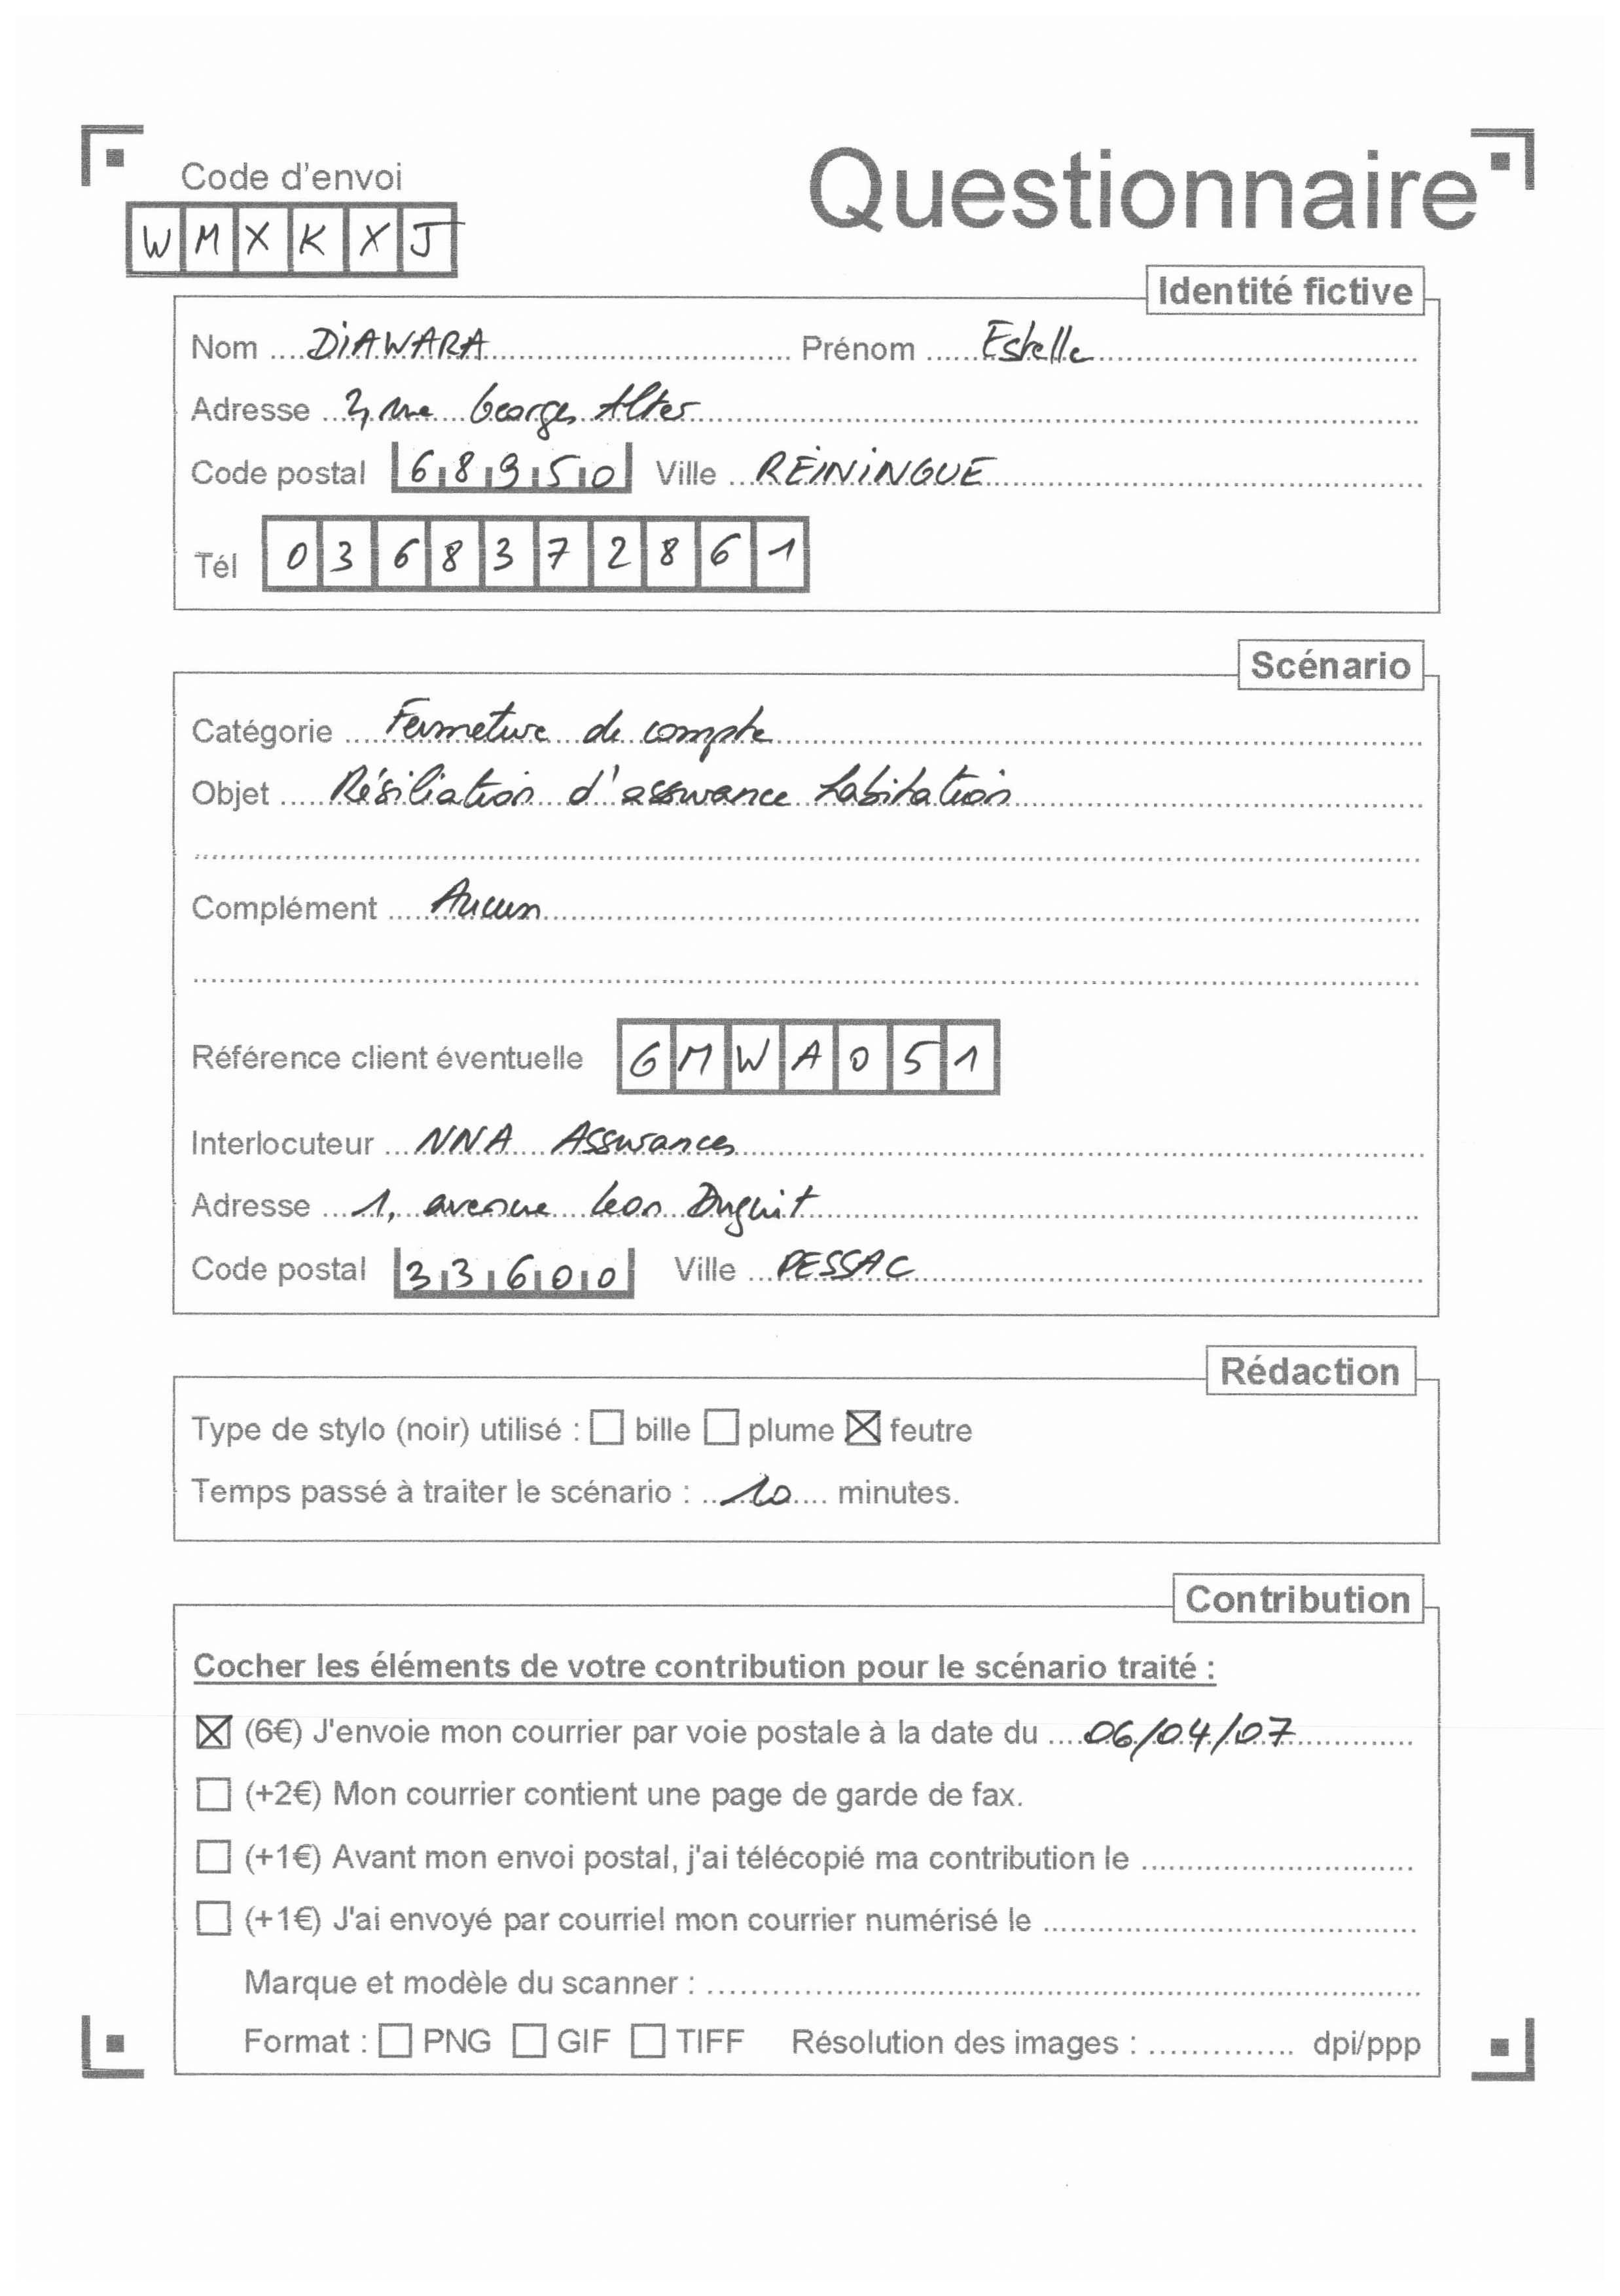 Code d'envoi
Questionnaire
WMXKXJ
Identité fictive
Nom .... DiAWARA ........ Prénom ...... Estelle ........
Adresse ... 2, rue Georges Alter ........
Code postal 68950 Ville ... REiNiNGUE ........
Tél 0368372861
Scénario
Catégorie .... Fermeture de compte ........
Objet ..... Résiliation d'assurance habitation ........
Complément .... Aucun ........
Référence client éventuelle GMWA051
Interlocuteur ... NNA Assurances ........
Adresse ... 1, avenue Leon Duguit ........
Code postal 33600 Ville ... PESSAC ........
Rédaction
Type de stylo (noir) utilisé : ☐ bille ☐ plume ☒ feutre
Temps passé à traiter le scénario : .. 10 .... minutes.
Contribution
Cocher les éléments de votre contribution pour le scénario traité :
☒ (6€) J'envoie mon courrier par voie postale à la date du .... 06/04/07 ........
☐ (+2€) Mon courrier contient une page de garde de fax.
☐ (+1€) Avant mon envoi postal, j'ai télécopié ma contribution le ........
☐ (+1€) J'ai envoyé par courriel mon courrier numérisé le ........
Marque et modèle du scanner : ........
Format : ☐ PNG ☐ GIF ☐ TIFF Résolution des images : ........ dpi/ppp